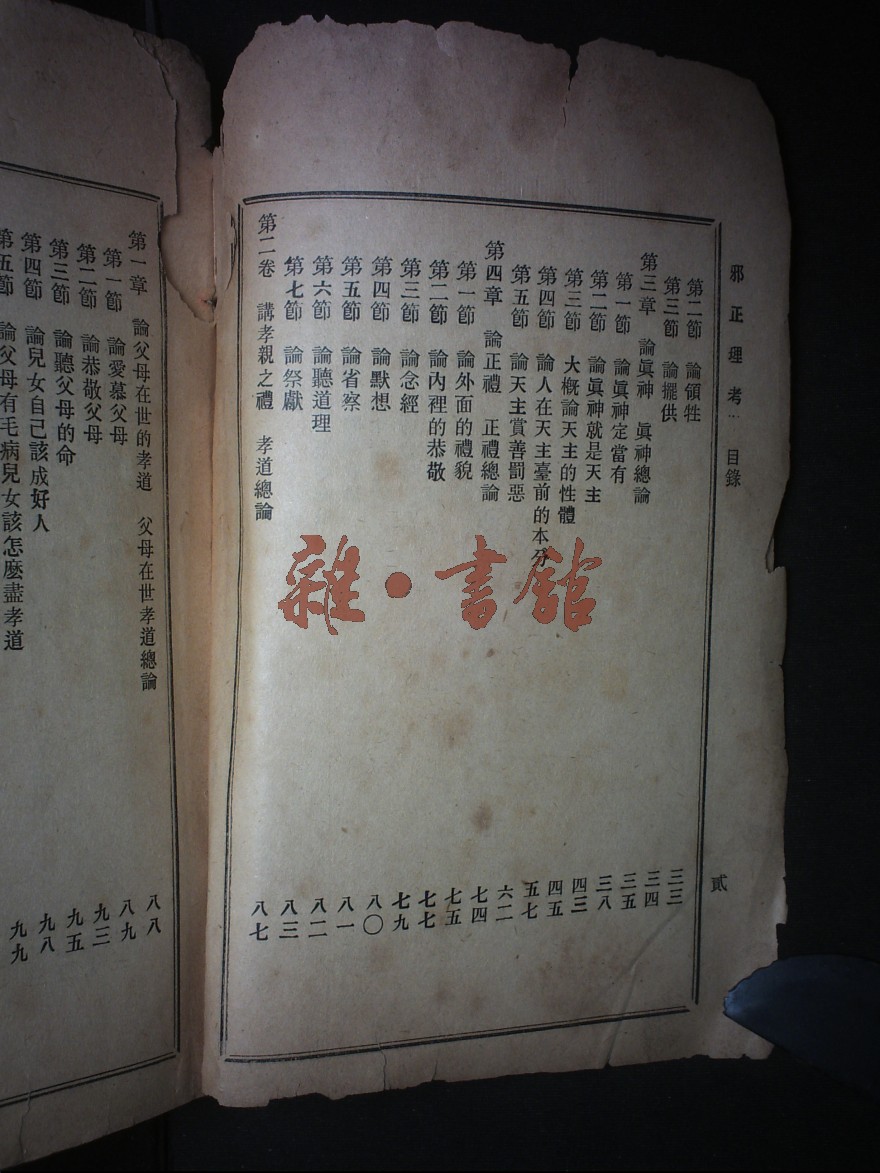 邪正理考：目錄 貳
第二節 論領牲 三三
第三節 論擺供 三四
第三章 論眞神 眞神總論 三五
第一節 論眞神定當有 三八
第二節 論眞神就是天主 四三
第三節 大槪論天主的性體 四五
第四節 論人在天主臺前的本分 五七
第五節 論天主賞善罰惡 六二
第四章 論正禮 正禮總論 七四
第一節 論外面的禮貌 七五
第二節 論內裡的恭敬 七七
第三節 論念經 七九
第四節 論默想 八〇
第五節 論省察 八一
第六節 論聽道理 八二
第七節 論祭獻 八三
第二卷 講孝親之禮 孝道總論 八七
第一章 論父母在世的孝道 父母在世孝道總論 八八
第一節 論愛慕父母 八九
第二節 論恭敬父母 九三
第三節 論聽父母的命 九五
第四節 論兒女自己該成好人 九八
第五節 論父母有毛病兒女該怎麽盡孝道 九九
雜·書館